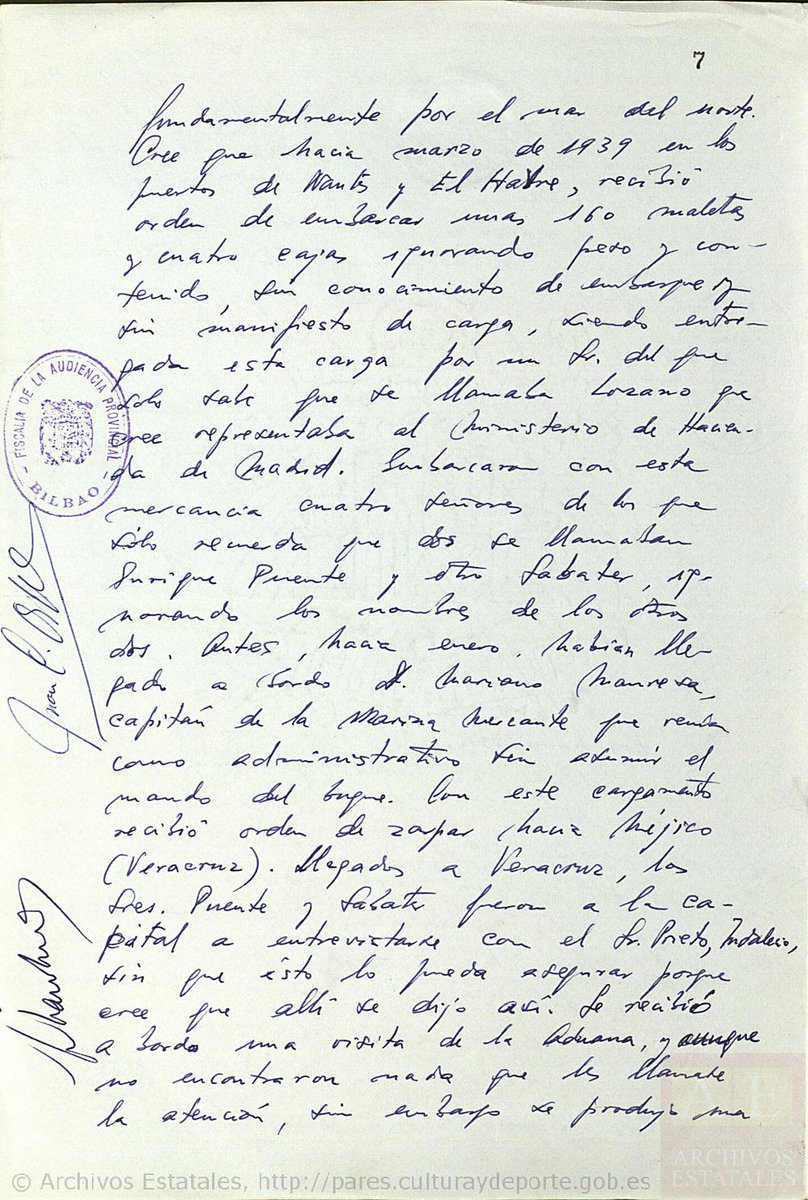 7
fundamentalmente por el mar del norte.
Cree que hacia marzo de 1939 en los
puertos de Nantes y El Havre, recibió
orden de embarcar unas 160 maletas
y cuatro cajas ignorando peso y con-
tenido, sin conocimiento de embarque y
sin manifiesto de carga, siendo entre-
gada esta carga por un Sr. del que
solo sabe que se llamaba Lozano que
cree representaba al Ministerio de Hacien-
da de Madrid. Embarcaron con esta
mercancia cuatro señores de los que
sólo recuerda que dos se llamaban
Enrique Puente y otro Sabater, ig-
norando los nombres de los otros
dos. Antes, hacia enero, habían lle-
gado a bordo D. Mariano Manresa,
capitán de la Marina Mercante que venía
como administrativo sin asumir el
mando del buque. Con este cargamento
recibió orden de zarpar hacia Méjico
(Veracruz). Llegados a Veracruz, los
Sres. Puente y Sabater fueron a la ca-
pital a entrevistarse con el Sr. Prieto, Indalecio,
sin que ésto lo pueda asegurar porque
cree que allí se dijo así. Se recibió
a bordo una visita de la Aduana, y aunque
no encontraron nada que les llamase
la atención, sin embargo se produjo una
FISCALIA DE LA AUDIENCIA PROVINCIAL
- BILBAO -
A E
ARCHIVOS
ESTATALES
© Archivos Estatales, http://pares.culturaydeporte.gob.es